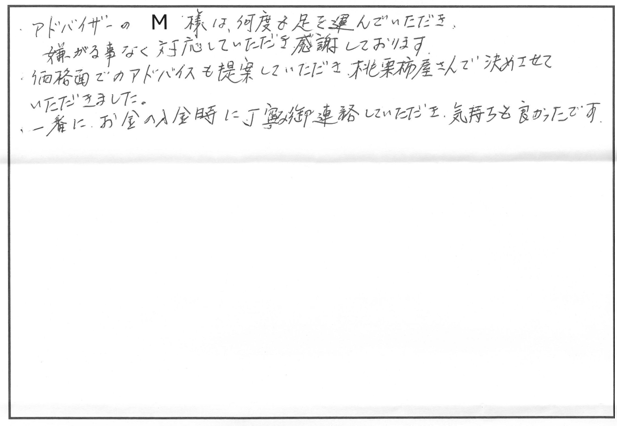 ・アドバイザーの M 様は、何度も足を運んでいただき、
嫌がる事なく対応していただき感謝しております。
・価格面でのアドバイスも提案していただき、桃栗柿屋さんで決めさせて
いただきました。
・一番に、お金の入金時に丁寧御連絡していただき、気持ちも良かったです。